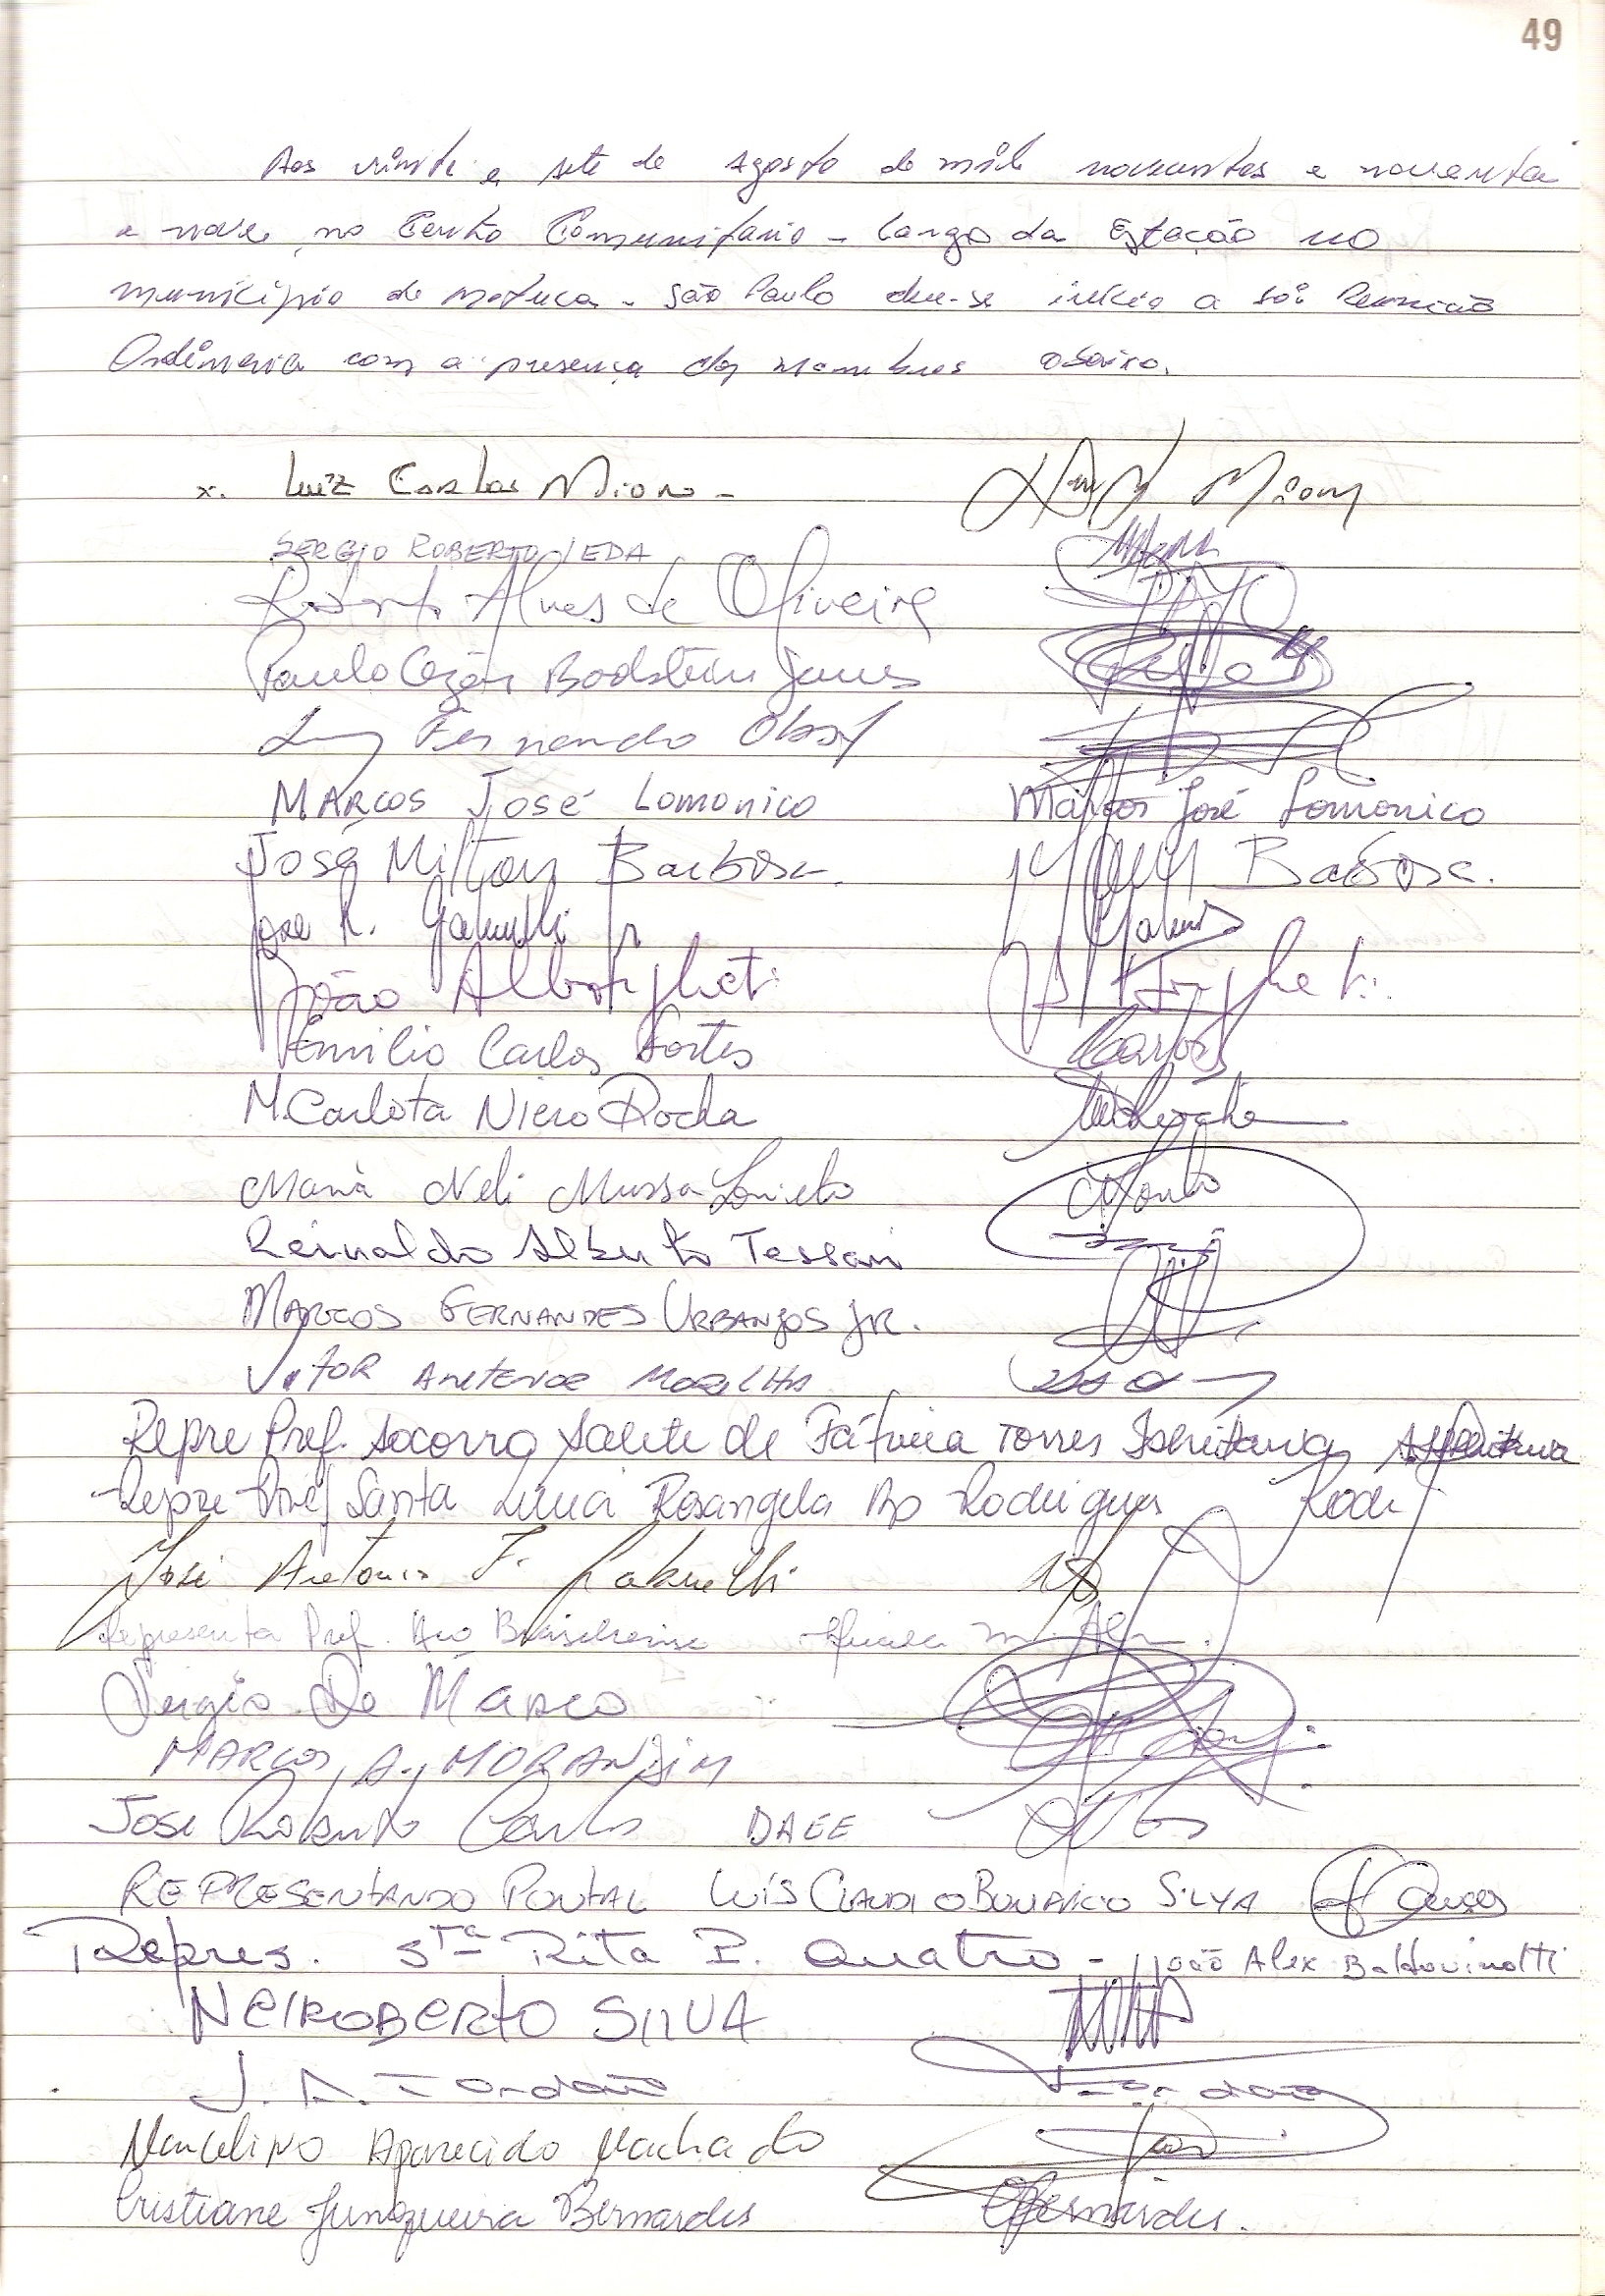 49
Aos vinte e sete de Agosto de mil novecentos e noventa
e nove, no Centro Comunitario - Largo da Estação no
município de Motuca - São Paulo deu-se inicio a Reunião
Ordinaria com a presença dos membros abaixo.
x. Luiz Carlos Miono -
SERGIO ROBERTO LEDA
Roberto Alves de Oliveira
Paulo Cezar Bodstein Gomes
Luiz Fernando
MARCOS JOSÉ LOMONICO Marcos José Lomonico
José Milton Barbosa. Barbosa.
Jose R. Gabrielli Jr
João Alborgheti
Emilio Carlos Fortes Carlos
M. Carlota Niero Rocha MRocha
Maria Neli Mussa Tonielo
Reinaldo Alberto Tessari
MARCOS FERNANDES URBANJOS JR.
VITOR ANTENOR MORILHA
Repre Pref. Socorro Salete de Fátima Torres Ishitava
Repre Pref Santa Lucia Rosangela Ap Rodrigues Rodr
José Antonio F. Gabrielli
Representa Pref. Brasiliense
Sergio De Marco
MARCOS A. MORANDIM
José Roberto Carlos DAEE
REPRESENTANDO PONTAL LUÍS CLAUDIO BONARICO SILVA
Repres. Sta Rita P. Quatro - João Alex Baldovinotti
NEI ROBERTO SILVA
J. A. Jordão Jordão
Marcelino Aparecido Machado
Cristiane Junqueira Bernardes CJBernardes.